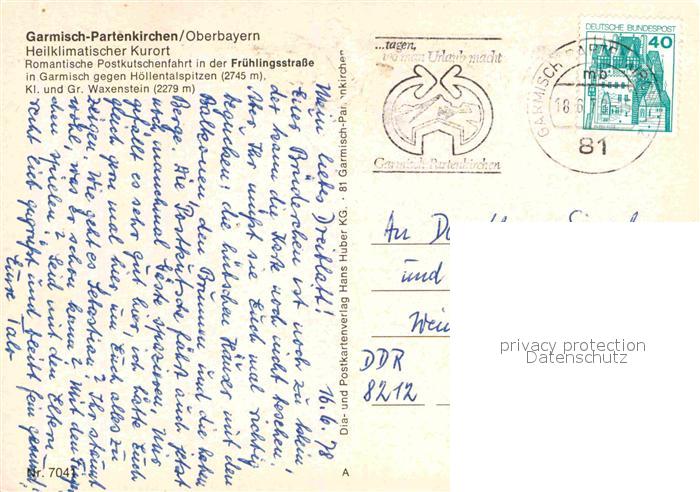 Garmisch-Partenkirchen/Oberbayern
Heilklimatischer Kurort
Romantische Postkutschenfahrt in der Frühlingsstraße
in Garmisch gegen Höllentalspitzen (2745 m),
Kl. und Gr. Waxenstein (2279 m)
16.6.78
Mein liebes Dreiblatt!
Euer Brüderchen ist noch zu klein,
der kann die Karte noch nicht beschen.
Aber Ihr müßt sie Euch mal richtig
begucken: die hübschen Häuser mit den
Balkonen, den Brunnen und die hohen
Berge. Die Postkutsche fährt auch jetzt
noch manchmal Gäste spazieren. Mir
gefällt es sehr gut hier, ich hätte Euch
gleich gern mal hier um Euch alles zu
zeigen. Wie geht es Sebastian? Ihr staunt
wohl, was Er schon kann? Mit den
chen spielen? Seid mit den Eltern
recht lieb gegrüßt und bleibt fein gesund!
Eure
Nr. 7041
A
Dia- und Postkartenverlag Hans Huber KG. · 81 Garmisch-Partenkirchen
...tagen,
wo man Urlaub macht
Garmisch-Partenkirchen
GARMISCH-PARTENKIRCHEN
mb
18.6.
81
DEUTSCHE BUNDESPOST
40
An
und
DDR
8212
privacy protection
Datenschutz